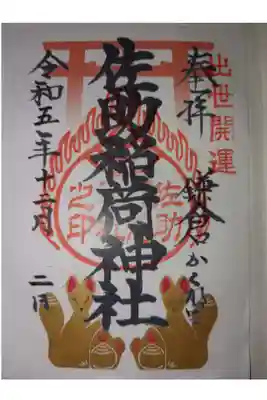 出世開運
奉拝
鎌倉かくれ里
佐助稲荷神社
佐助
之印
令和五年十二月
二日